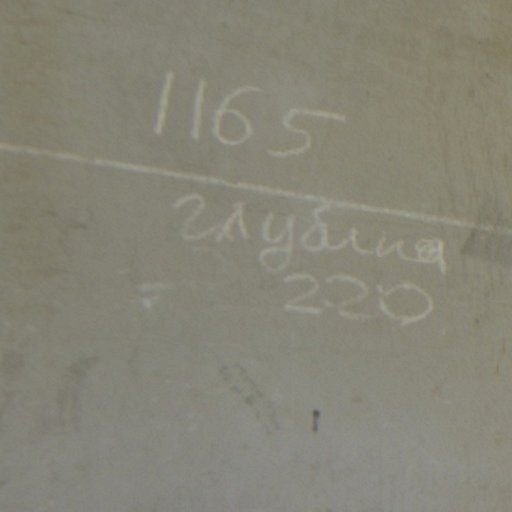 1165
глубина
220